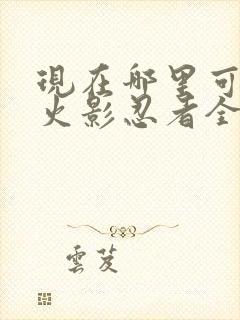 現在哪里可
火影忍者全
雲芨